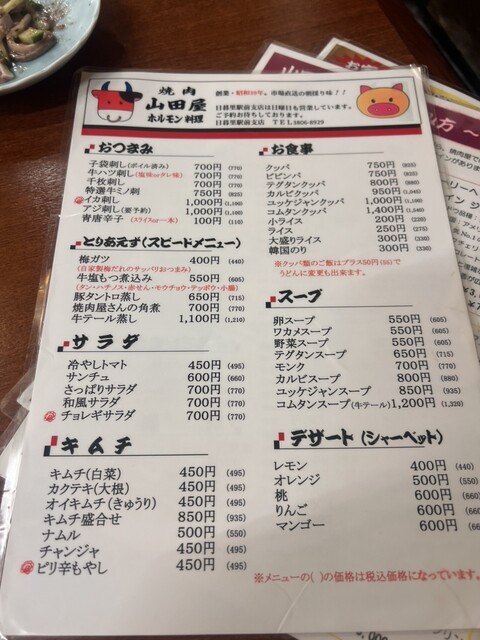 焼肉
山田屋
ホルモン料理
創業・昭和39年。市場直送の朝採り味！！
日暮里駅前支店は日曜日も営業しています。
ご予約お待ちしております。
日暮里駅前支店 TEL3806-8929
おつまみ
子袋刺し(ボイル済み) 700円 (770)
牛ハツ刺し(塩味orタレ味) 700円 (770)
千枚刺し 700円 (770)
特選牛ミノ刺 750円 (825)
イカ刺し 1,000円 (1,100)
アジ刺し(要予約) 1,000円 (1,100)
青唐辛子 (スライスor一本) 100円 (110)
とりあえず(スピードメニュー)
梅ガツ 400円 (440)
(自家製梅だれのサッパリおつまみ)
牛塩もつ煮込み 550円 (605)
(タン・ハチノス・赤せん・モウチョウ・テッポウ・小腸)
豚タントロ蒸し 650円 (715)
焼肉屋さんの角煮 700円 (770)
牛テール蒸し 1,100円 (1,210)
サラダ
冷やしトマト 450円 (495)
サンチュ 600円 (660)
さっぱりサラダ 700円 (770)
和風サラダ 700円 (770)
チョレギサラダ 700円 (770)
キムチ
キムチ(白菜) 450円 (495)
カクテキ(大根) 450円 (495)
オイキムチ(きゅうり) 450円 (495)
キムチ盛合せ 850円 (935)
ナムル 500円 (550)
チャンジャ 450円 (495)
ピリ辛もやし 450円 (495)
お食事
クッパ 750円 (825)
ビビンパ 750円 (825)
テグタンクッパ 800円 (880)
カルビクッパ 950円 (1,045)
ユッケジャンクッパ 1,000円 (1,100)
コムタンクッパ 1,400円 (1,540)
小ライス 200円 (220)
ライス 250円 (275)
大盛りライス 300円 (330)
韓国のり 300円 (330)
※クッパ類のご飯はプラス50円(55)で
うどんに変更も出来ます。
スープ
卵スープ 550円 (605)
ワカメスープ 550円 (605)
野菜スープ 550円 (605)
テグタンスープ 650円 (715)
モンク 700円 (770)
カルビスープ 800円 (880)
ユッケジャンスープ 850円 (935)
コムタンスープ(牛テール) 1,200円 (1,320)
デザート (シャーベット)
レモン 400円 (440)
オレンジ 500円 (550)
桃 600円 (660)
りんご 600円 (660
マンゴー 600円 (66
※メニューの( )の価格は税込価格になっています。